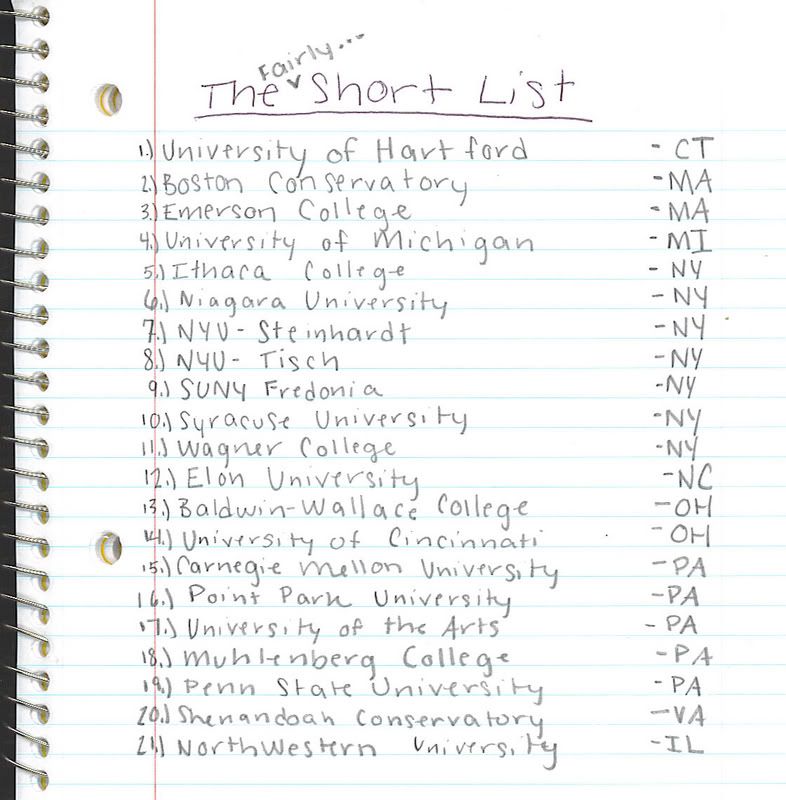 The Fairly... Short List
1.) University of Hartford - CT
2.) Boston Conservatory - MA
3.) Emerson College - MA
4.) University of Michigan - MI
5.) Ithaca College - NY
6.) Niagara University - NY
7.) NYU - Steinhardt - NY
8.) NYU - Tisch - NY
9.) SUNY Fredonia - NY
10.) Syracuse University - NY
11.) Wagner College - NY
12.) Elon University - NC
13.) Baldwin-Wallace College - OH
14.) University of Cincinnati - OH
15.) Carnegie Mellon University - PA
16.) Point Park University - PA
17.) University of the Arts - PA
18.) Muhlenberg College - PA
19.) Penn State University - PA
20.) Shenandoah Conservatory - VA
21.) NorthWestern University - IL